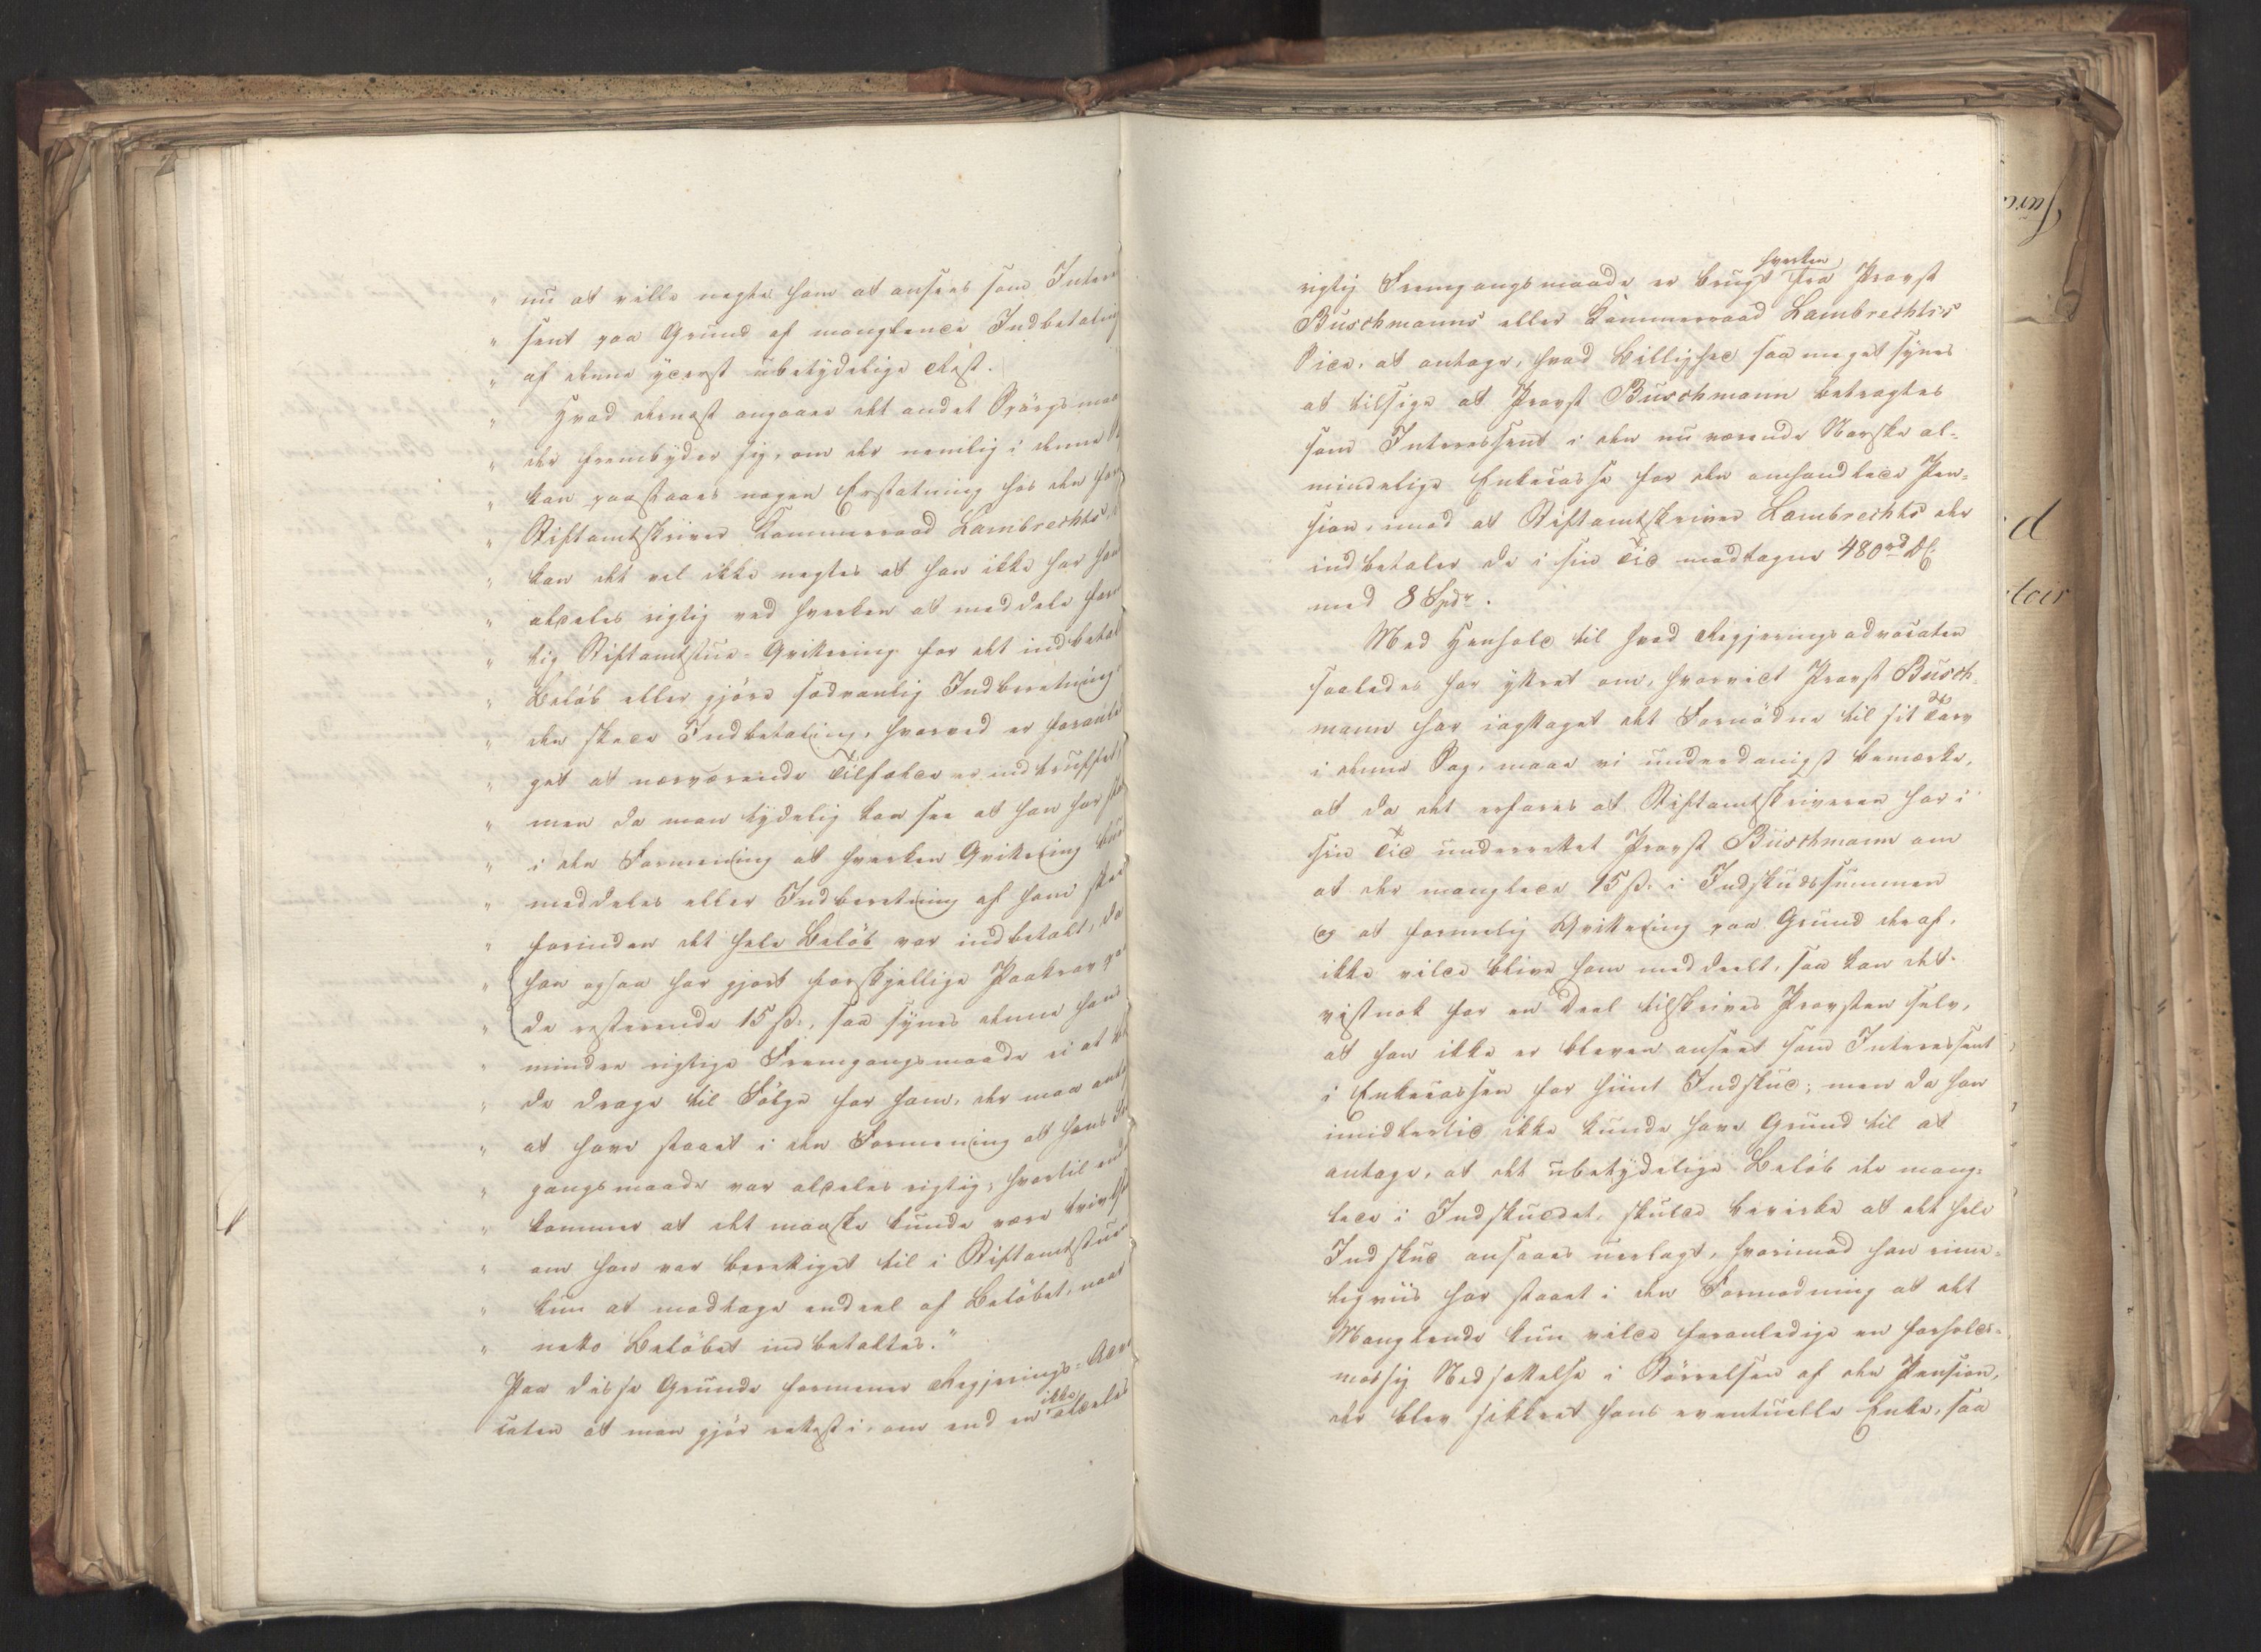 " nu at ville negte ham at ansees som Intere
" sent paa Grund af manglende Indbetaling
" af denne yderst ubetydelige Rest.
" Hvad dernæst angaaer det andet Spörgsmaa
" der frembyder sig, om der nemlig i denne S
" kan paastaaes nogen Erstatning hos den for
" Stiftamtskriver Kammerraad Lambrechts,
" kan det vel ikke negtes at han ikke har han
" aldeles rigtig ved hverken at meddele for
" lig Stiftamtstue-Qvittering for det indbetal
" Belöb eller gjöre sædvanlig Indberetning
" den skede Indbetaling, hvorved er foranle
" get at nærværende Tilfælde er indtruffet,
" men da man tydelig kan see at han har sta
" i den Formening at hverken Qvittering kun
" meddeles eller Indberetning af ham skee
" forinden det hele Belöb var indbetalt, da
" han ogsaa har gjort forskjellige Paakrav pa
" de resterende 15 ß., saa synes denne hans
" mindre rigtige Fremgangsmaade ei at
" de drage til Fölge for ham, der maa anta
" at have staaet i den Formening at hans Fr
" gangsmaade var aldeles rigtig; hvortil end
" kommer at det maaske kunde være tvivls
" om han var berettiget til i Stiftamtstuen
" kun at modtage endeel af Belöbet, naar
" netto Belöbet indbetaltes."
Paa disse Grunde formener Regjerings-Adv
caten at man gjör rettest i, om end en ikke aldeles
rigtig Fremgangsmaade er brugt hverken fra Provst
Buschmanns eller Kammerraad Lambrechts's
Side, at antage, hvad Billighed saa meget synes
at tilsige at Provst Buschmann betragtes
som Interessent i den nu værende Norske al-
mindelige Enkecasse for den omhandlede Pen-
sion, mod at Stiftamtskriver Lambrechts der
indbetaler de i sin Tid modtagne 480 rd
med 8 Spdr.
Med Henhold til hvad Regjeringsadvocaten
saaledes har yttret om, hvorvidt Provst Busch-
mann har iagttaget det Fornödne til sit Tarv
i denne Sag, maae vi underdanigst bemærke,
at da det erfares at Stiftamtskriveren har i
sin Tid underrettet Provst Buschmann om
at der manglede 15 ß. i Indskudssummen
og at formelig Qvittering paa Grund deraf,
ikke vilde blive ham meddeelt, saa kan det
vistnok for en Deel tilskrives Provsten selv,
at han ikke er bleven anseet som Interessent
i Enkecassen for hiint Indskud; men da han
imidlertid ikke kunde have Grund til at
antage, at det ubetydelige Belöb der mang-
lede i Indskuddet, skulde bevirke at det hele
Indskud ansaaes uerlagt, hvorimod han rime-
ligviis har staaet i den Formodning at det
Manglende kun vilde foranledige en forholds-
mæssig Nedsættelse i Störrelsen af den Pension,
der blev sikkret hans eventuelle Enke, saa